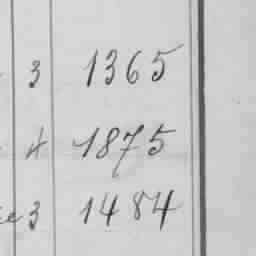 3 1365
4 1875
3 1484